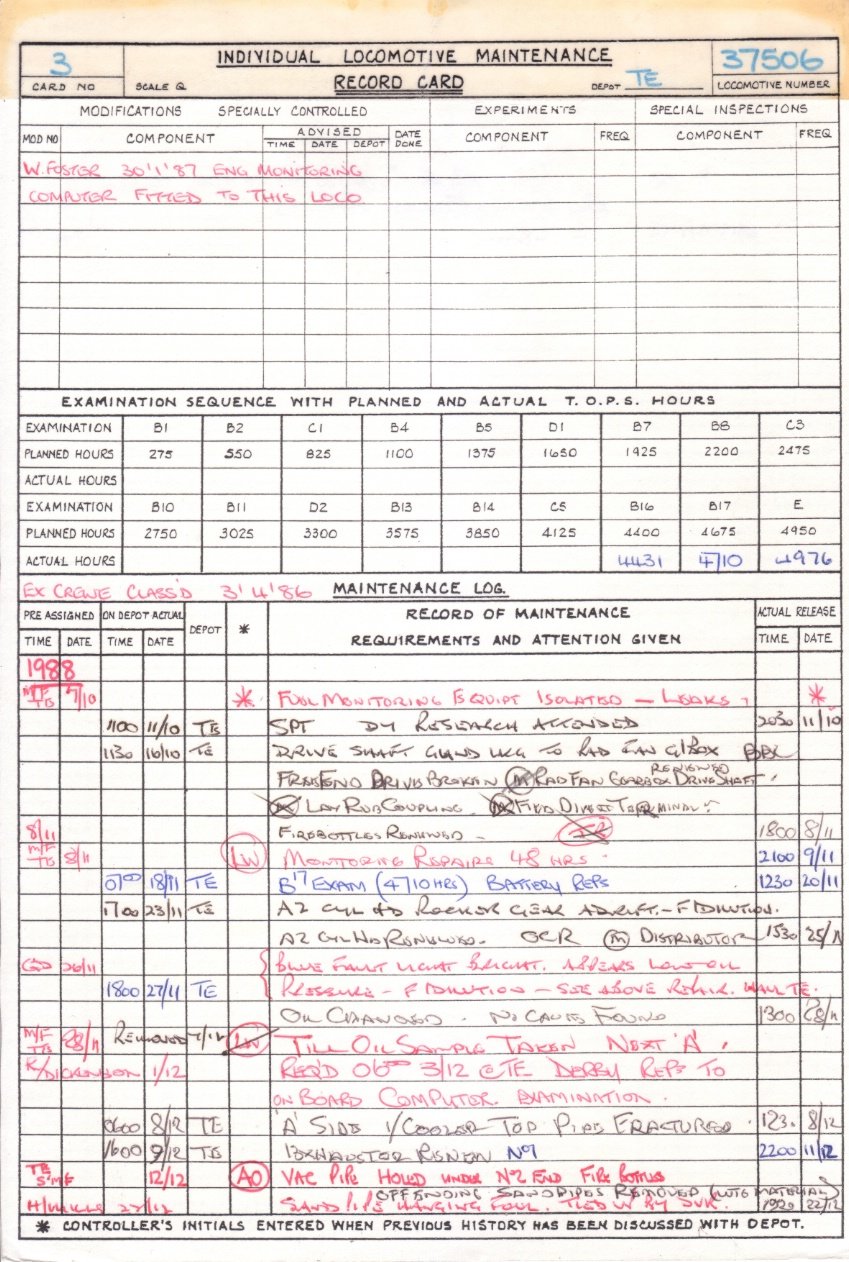 3 INDIVIDUAL LOCOMOTIVE MAINTENANCE 37506
CARD NO SCALE Q RECORD CARD DEPOT TE LOCOMOTIVE NUMBER
MODIFICATIONS SPECIALLY CONTROLLED EXPERIMENTS SPECIAL INSPECTIONS
MOD NO COMPONENT ADVISED DATE DONE COMPONENT FREQ COMPONENT FREQ
TIME DATE DEPOT
W. FOSTER 30'1'87 ENG MONITORING
COMPUTER FITTED TO THIS LOCO
EXAMINATION SEQUENCE WITH PLANNED AND ACTUAL T.O.P.S. HOURS
EXAMINATION B1 B2 C1 B4 B5 D1 B7 B8 C3
PLANNED HOURS 275 550 825 1100 1375 1650 1925 2200 2475
ACTUAL HOURS
EXAMINATION B10 B11 D2 B13 B14 C5 B16 B17 E
PLANNED HOURS 2750 3025 3300 3575 3850 4125 4400 4675 4950
ACTUAL HOURS 4431 4710 4976
EX CREWE CLASS'D 3'4'86 MAINTENANCE LOG.
PRE ASSIGNED ON DEPOT ACTUAL DEPOT * RECORD OF MAINTENANCE ACTUAL RELEASE
TIME DATE TIME DATE REQUIREMENTS AND ATTENTION GIVEN TIME DATE
1988
M/F TE 7/10 * FUEL MONITORING EQUIPT ISOLATED - LEAKS *
1100 11/10 TE SPT DY RESEARCH ATTENDED 2030 11/10
1130 16/10 TE DRIVE SHAFT GLAND LKG TO RAD FAN G/BOX
FREE END DRIVE BROKEN (M) RAD FAN GEARBOX DRIVE SHAFT RENEWED
LAY RUB COUPLING (M) FIELD DIVERT TERMINAL
8/11 FIREBOTTLES RENEWED - 1800 8/11
M/F TE 8/11 LW MONITORING REPAIRS 48 HRS 2100 9/11
0700 18/11 TE B'17 EXAM (4710 HRS) BATTERY REPS 1230 20/11
1700 23/11 TE A2 CYL HD ROCKER GEAR ADRIFT. - F/DILUTION.
A2 CYL HD RENEWED. OCR (M) DISTRIBUTOR 1530 25/11
CD 26/11 BLUE FAULT LIGHT BRIGHT. APPEARS LOW OIL
1800 27/11 TE PRESSURE - F DILUTION - SEE ABOVE REPAIR. TE.
OIL CHANGED. NO CAUSE FOUND 1300 28/11
M/F TE 28/11 REMOVED 7/12 LW TILL OIL SAMPLE TAKEN NEXT 'A'.
R/DICKENSON 1/12 REQ'D 0600 3/12 @ TE DERBY REPS TO
ON BOARD COMPUTER. EXAMINATION.
0600 8/12 TE 'A' SIDE I/COOLER TOP PIPE FRACTURED. 8/12
1600 9/12 TE EXHAUSTER RENEW Nº1 2200 11/12
TE S'MF 12/12 AO VAC PIPE HOLED UNDER Nº2 END FIRE BOTTLES
OFFENDING SANDPIPES REMOVED (WTG MATERIAL)
22/12 SAND PIPE HANGING FOUL. TIED UP BY DVR. 1920 22/12
* CONTROLLER'S INITIALS ENTERED WHEN PREVIOUS HISTORY HAS BEEN DISCUSSED WITH DEPOT.